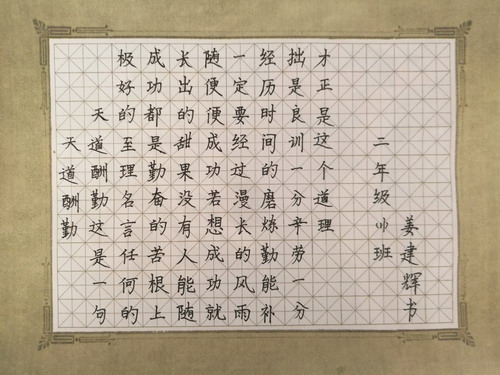 天道酬勤
天道酬勤这是一句
极好的至理名言任何的
成功都是勤奋的苦根上
长出的甜果没有人能随
随便便成功若想成功就
一定要经过漫长的风雨
经历时间的磨炼勤能补
拙是良训一分辛劳一分
才正是这个道理
二年级班
姜建辉书